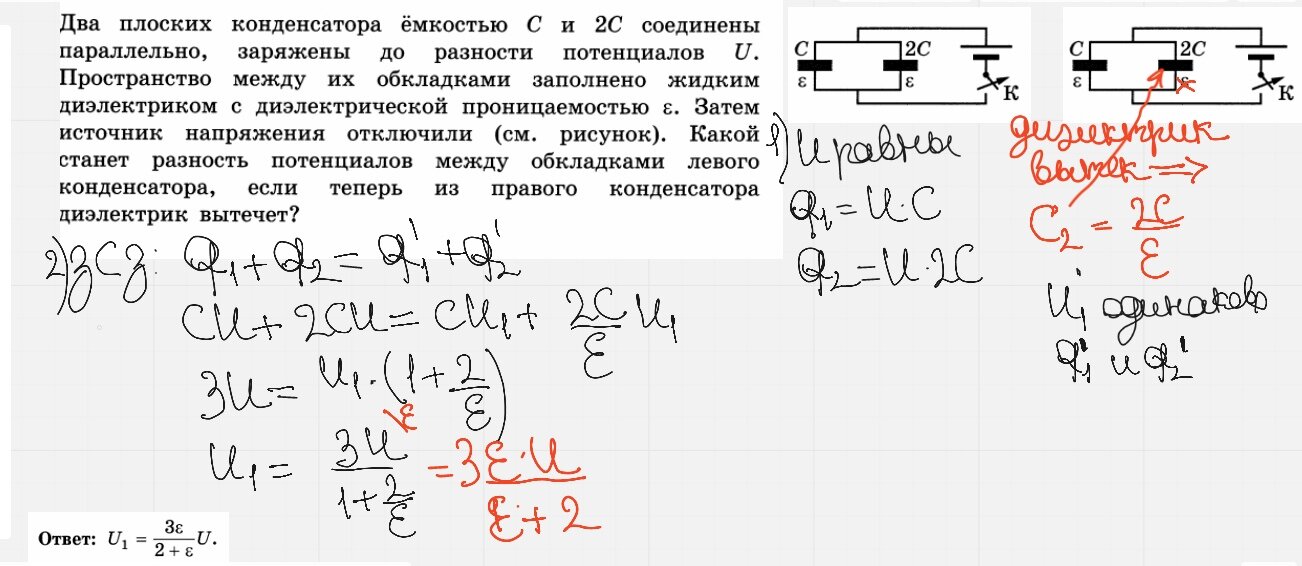 Два плоских конденсатора ёмкостью C и 2C соединены
параллельно, заряжены до разности потенциалов U.
Пространство между их обкладками заполнено жидким
диэлектриком с диэлектрической проницаемостью ε. Затем
источник напряжения отключили (см. рисунок). Какой
станет разность потенциалов между обкладками левого
конденсатора, если теперь из правого конденсатора
диэлектрик вытечет?
C 2C
ε ε К
C 2C
ε ε К
1) U равны
q₁ = U·C
q₂ = U·2C
диэлектрик
вытек ⇒
C₂ = 2C/ε
U₁ одинаково
q₁' и q₂'
2) ЗСЗ: q₁ + q₂ = q₁' + q₂'
CU + 2CU = CU₁ + 2C/ε U₁
3U = U₁·(1 + 2/ε)
U₁ = 3U\ε / (1 + 2/ε) = 3ε·U / (ε + 2)
Ответ: U₁ = 3ε/(2 + ε) U.